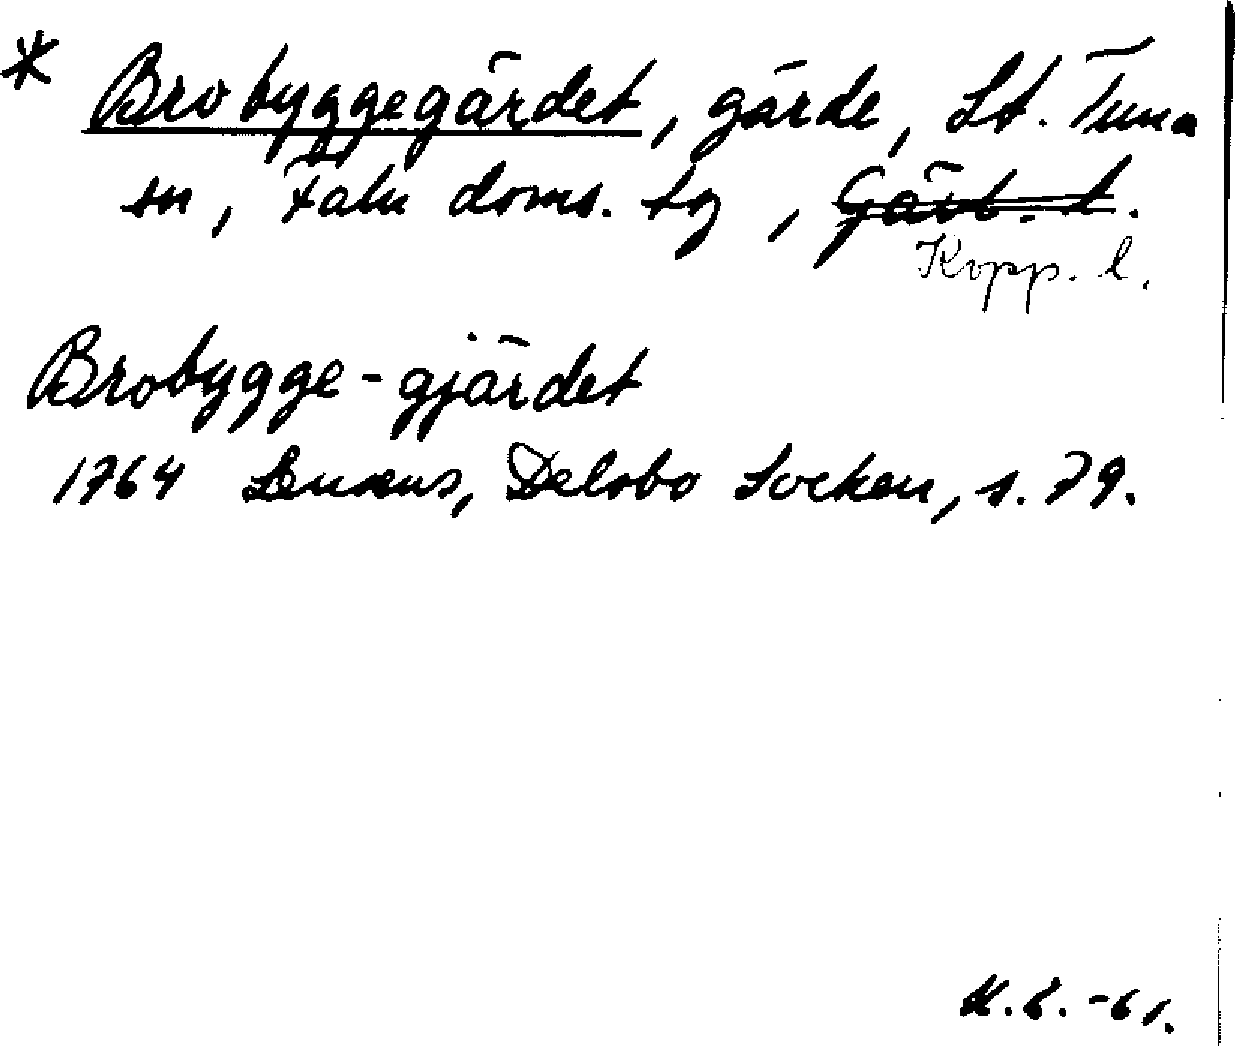 * Brobyggegärdet, gärde, St. Tuna
sn, Falu doms. tg, Gävl. l.
Kopp. l.
Brobygge-gjärdet
1764 Lenæus, Delsbo Socken, s. 79.
-61.